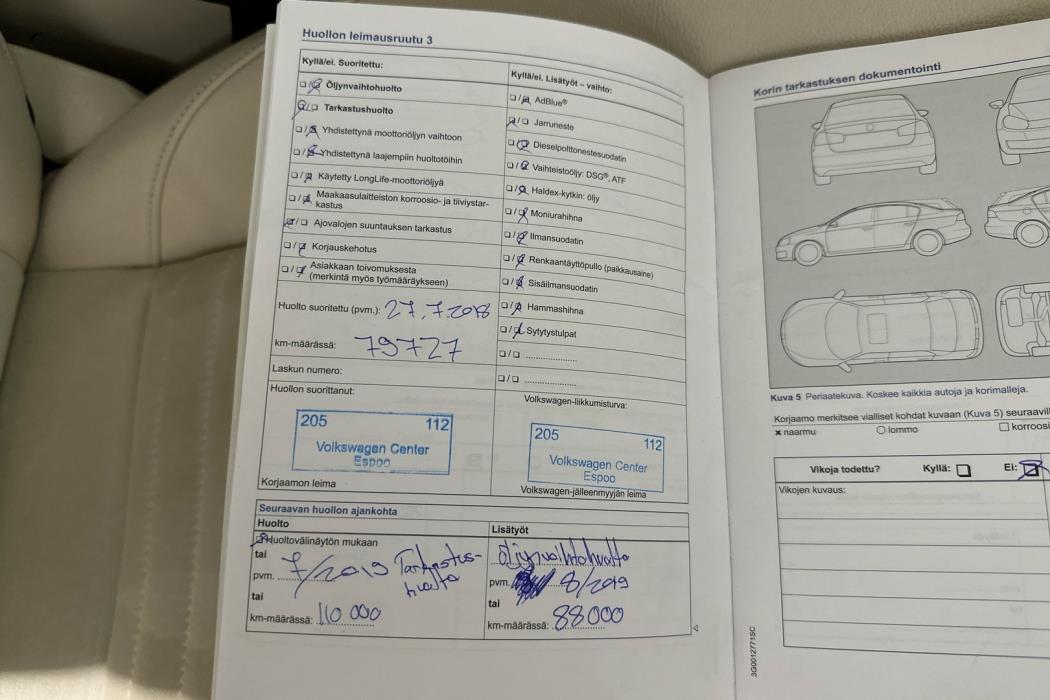 Huollon leimausruutu 3
Kyllä/ei. Suoritettu:
Öljynvaihtohuolto
Tarkastushuolto
Yhdistettynä moottoriöljyn vaihtoon
Yhdistettynä laajempiin huoltotöihin
Käytetty LongLife-moottoriöljyä
Maakaasulaitteiston korroosio- ja tiiviystar-
kastus
Ajovalojen suuntauksen tarkastus
Korjauskehotus
Asiakkaan toivomuksesta
(merkintä myös työmääräykseen)
Huolto suoritettu (pvm.): 27.7.2018
km-määrässä: 79727
Laskun numero:
Huollon suorittanut:
205 112
Volkswagen Center
Espoo
Korjaamon leima
Kyllä/ei. Lisätyöt – vaihto:
AdBlue®
Jarruneste
Dieselpolttonestesuodatin
Vaihteistoöljy: DSG®, ATF
Haldex-kytkin: öljy
Moniurahihna
Ilmansuodatin
Renkaantäyttöpullo (paikkausaine)
Sisäilmansuodatin
Hammashihna
Sytytystulpat
Volkswagen-liikkumisturva:
205 112
Volkswagen Center
Espoo
Volkswagen-jälleenmyyjän leima
Seuraavan huollon ajankohta
Huolto
Huoltovälinäytön mukaan
tai
pvm. 7/2019 Tarkastus-
huolto
tai
km-määrässä: 110 000
Lisätyöt
öljynvaihtohuolto
pvm. 8/2019
tai
km-määrässä: 88000
Korin tarkastuksen dokumentointi
Kuva 5 Periaatekuva. Koskee kaikkia autoja ja korimalleja.
Korjaamo merkitsee vialliset kohdat kuvaan (Kuva 5)
naarmu lommo
Vikoja todettu? Kyllä: Ei:
Vikojen kuvaus:
3G0012771SC